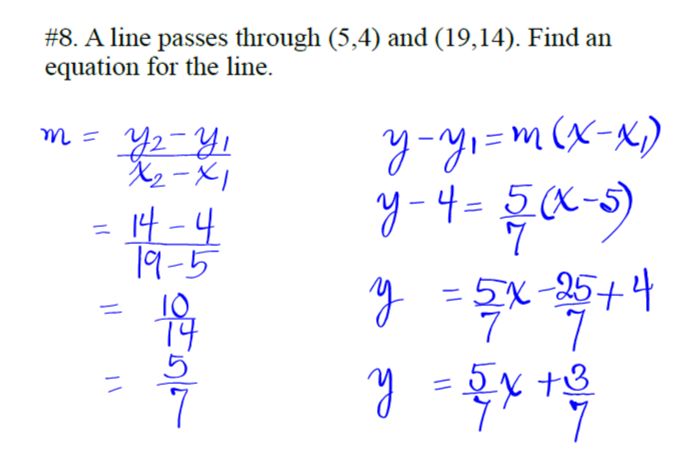 #8. A line passes through (5,4) and (19,14). Find an
equation for the line.
m = y₂-y₁/x₂-x₁
= 14-4/19-5
= 10/14
= 5/7
y-y₁=m(x-x₁)
y-4=5/7(x-5)
y =5/7x-25/7+4
y =5/7x+3/7